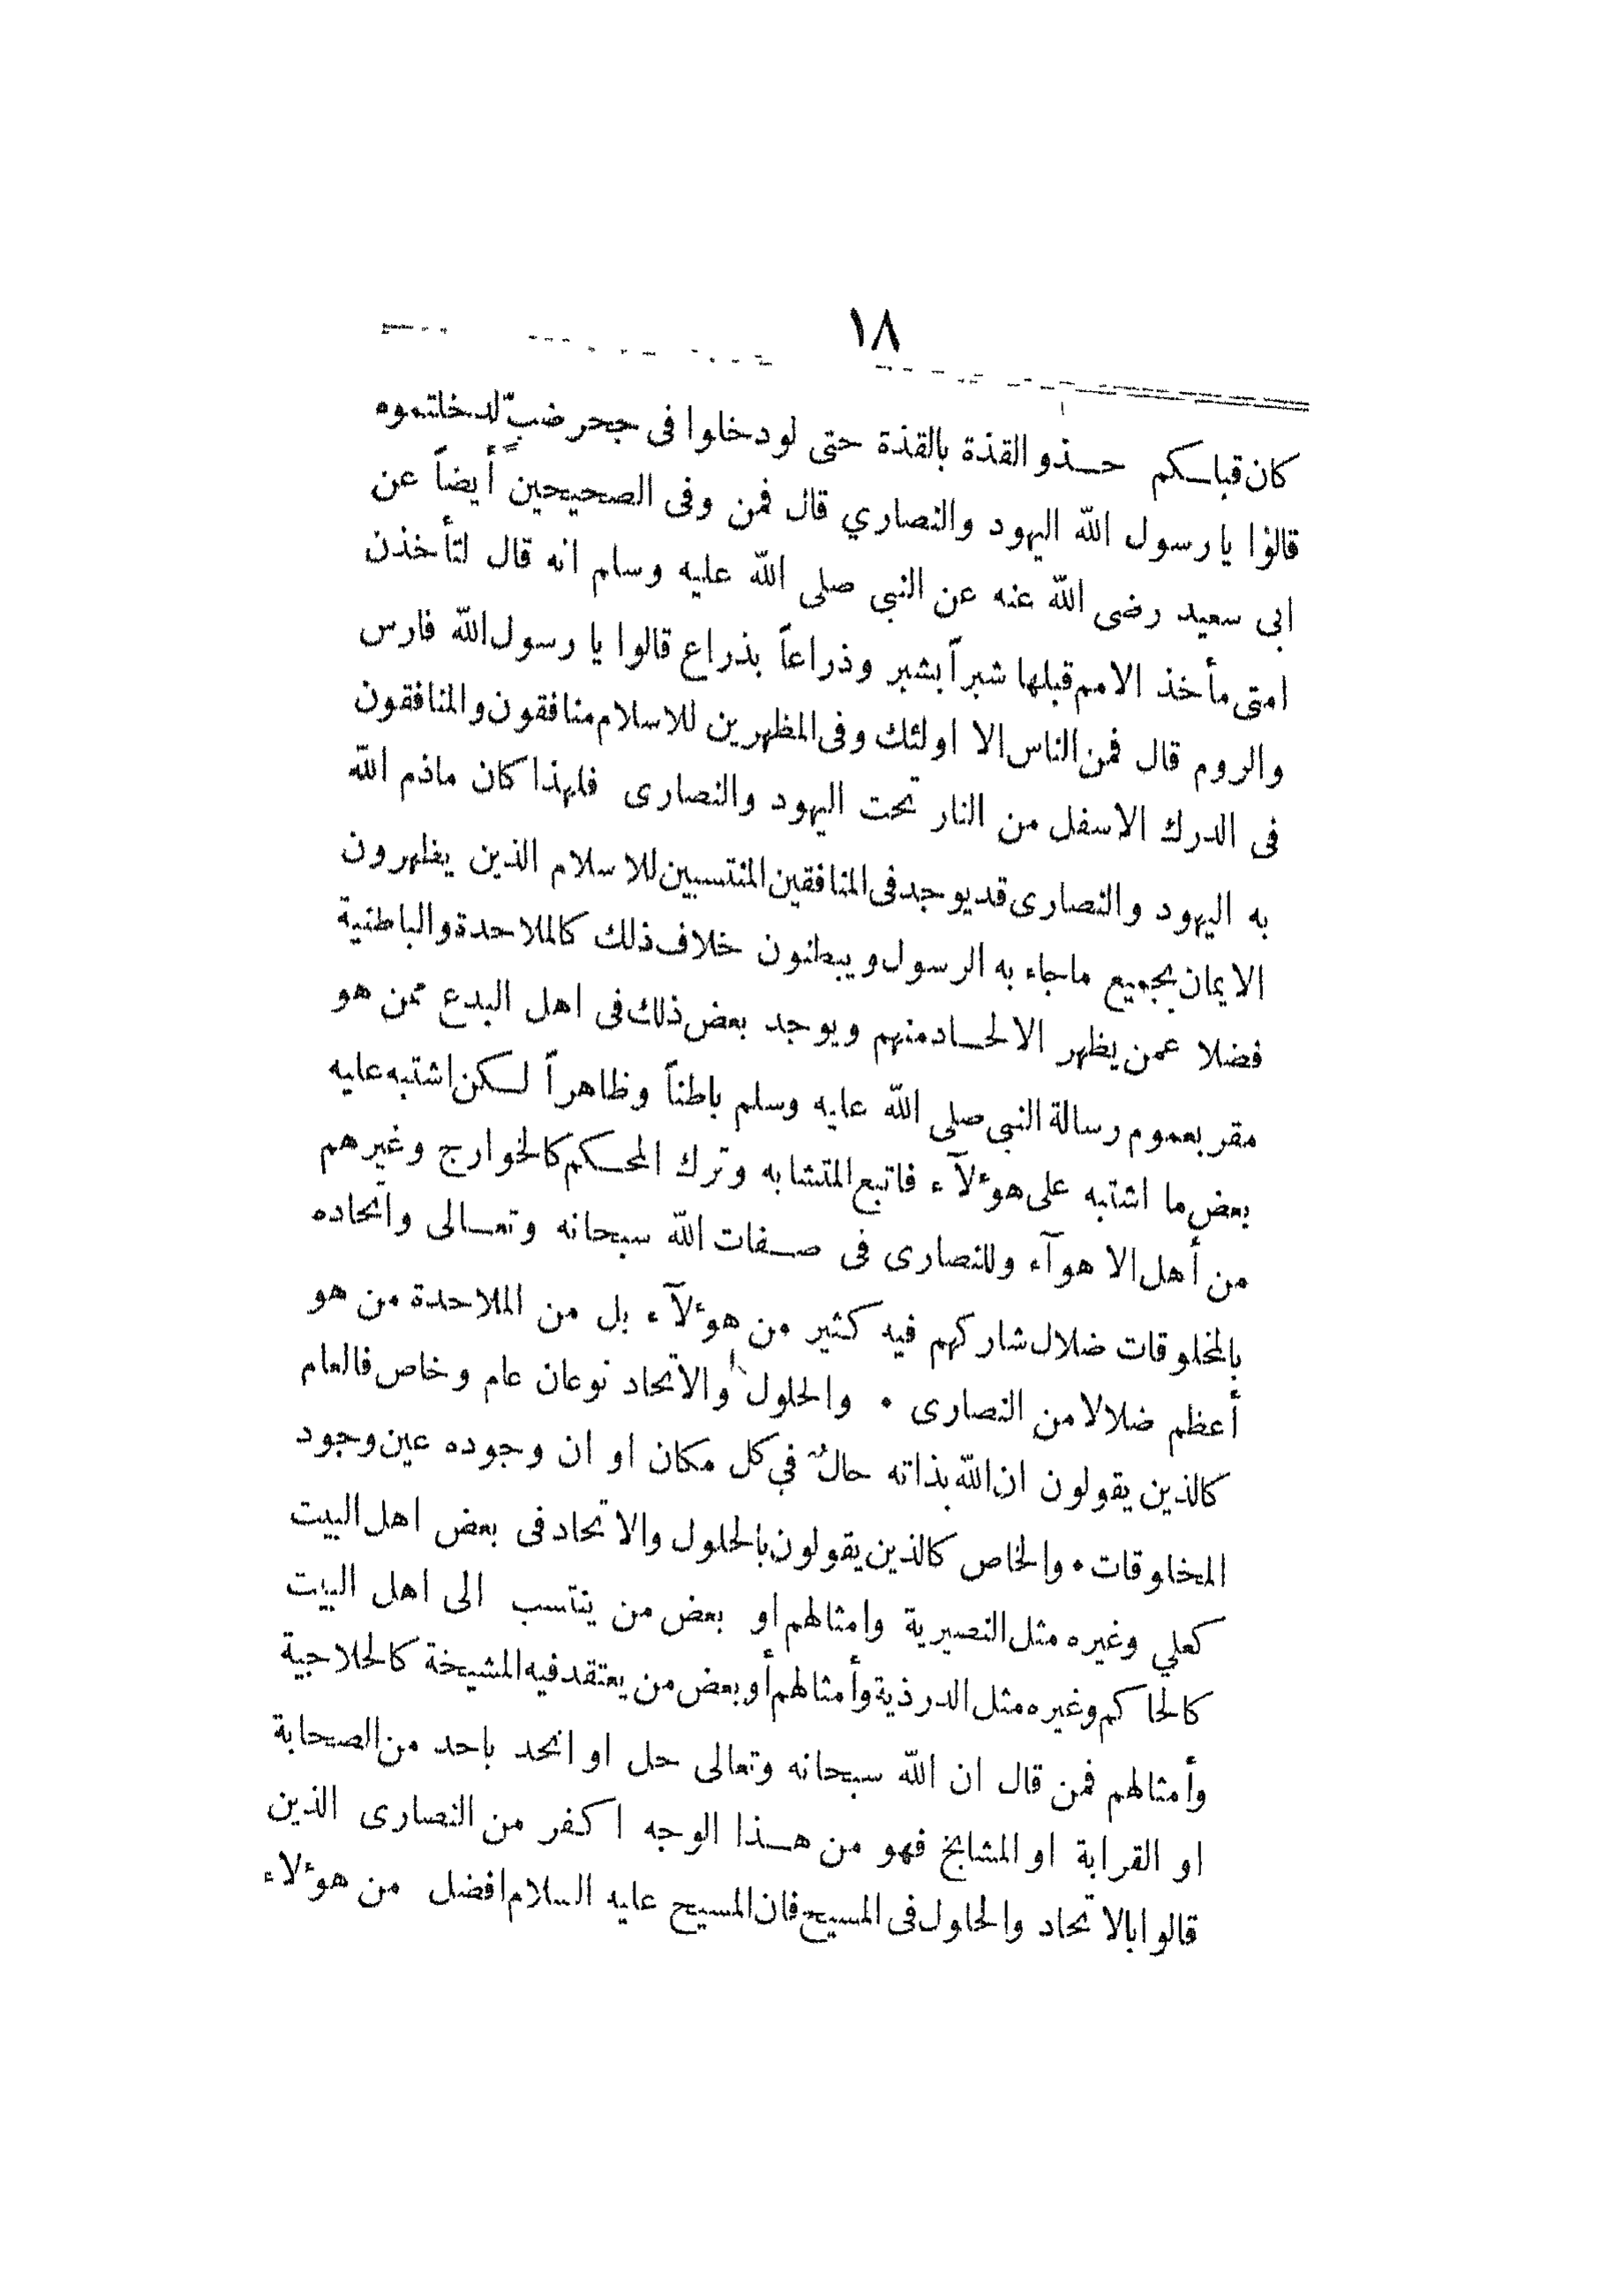 ١٨
كان قبلكم حذو القذة بالقذة حتى لو دخلوا فى جحر ضبٍّ لدخلتموه
قالوا يا رسول الله اليهود والنصاري قال فمن وفى الصحيحين أيضاً عن
ابى سعيد رضى الله عنه عن النبي صلى الله عليه وسلم انه قال لتأخذن
امتى مأخذ الامم قبلها شبراً بشبر وذراعاً بذراع قالوا يا رسول الله فارس
والروم قال فمن الناس الا اولئك وفى المظهرين للاسلام منافقون والمنافقون
فى الدرك الاسفل من النار تحت اليهود والنصارى فلهذا كان ماذم الله
به اليهود والنصارى قد يوجد فى المنافقين المنتسبين للاسلام الذين يظهرون
الايمان بجميع ماجاء به الرسول ويبطنون خلاف ذلك كالملاحدة والباطنية
فضلا عمن يظهر الالحاد منهم ويوجد بعض ذلك فى اهل البدع ممن هو
مقر بعموم رسالة النبي صلى الله عليه وسلم باطناً وظاهراً لكن اشتبه عليه
بعض ما اشتبه على هؤلآء فاتبع المتشابه وترك المحكم كالخوارج وغيرهم
من أهل الاهوآء وللنصارى فى صفات الله سبحانه وتعالى واتحاده
بالمخلوقات ضلال شاركهم فيه كثير من هؤلآء بل من الملاحدة من هو
أعظم ضلالا من النصارى • والحلول والاتحاد نوعان عام وخاص فالعام
كالذين يقولون ان الله بذاته حالٌّ في كل مكان او ان وجوده عين وجود
المخلوقات • والخاص كالذين يقولون بالحلول والاتحاد فى بعض اهل البيت
كعلي وغيره مثل النصيرية وامثالهم او بعض من ينتسب الى اهل البيت
كالحاكم وغيره مثل الدرذية وأمثالهم أو بعض من يعتقد فيه المشيخة كالحلاجية
وأمثالهم فمن قال ان الله سبحانه وتعالى حل او اتحد باحد من الصحابة
او القرابة او المشايخ فهو من هذا الوجه اكفر من النصارى الذين
قالوا بالاتحاد والحلول فى المسيح فان المسيح عليه السلام افضل من هؤلاء